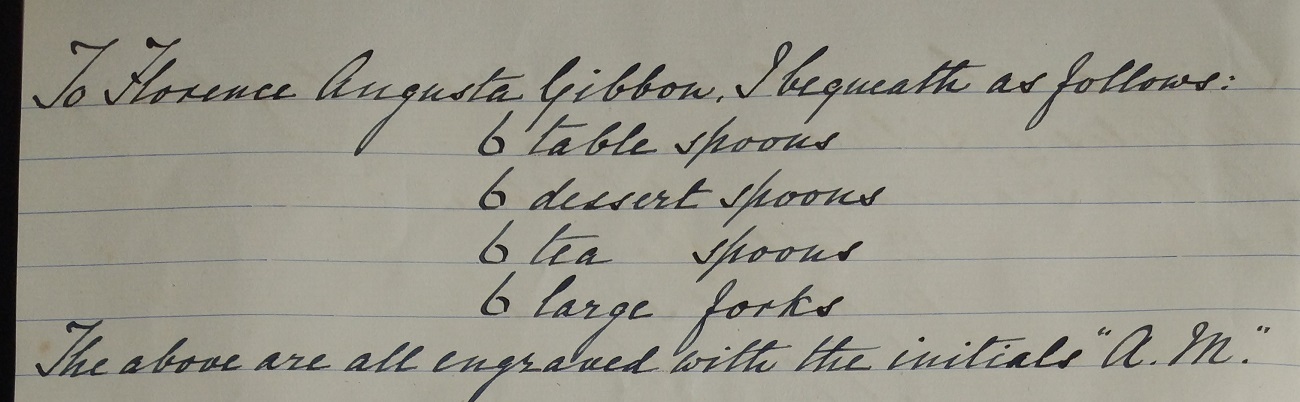 To Florence Augusta Gibbon, I bequeath as follows:
6 table spoons
6 dessert spoons
6 tea spoons
6 large forks
The above are all engraved with the initials "A. M."